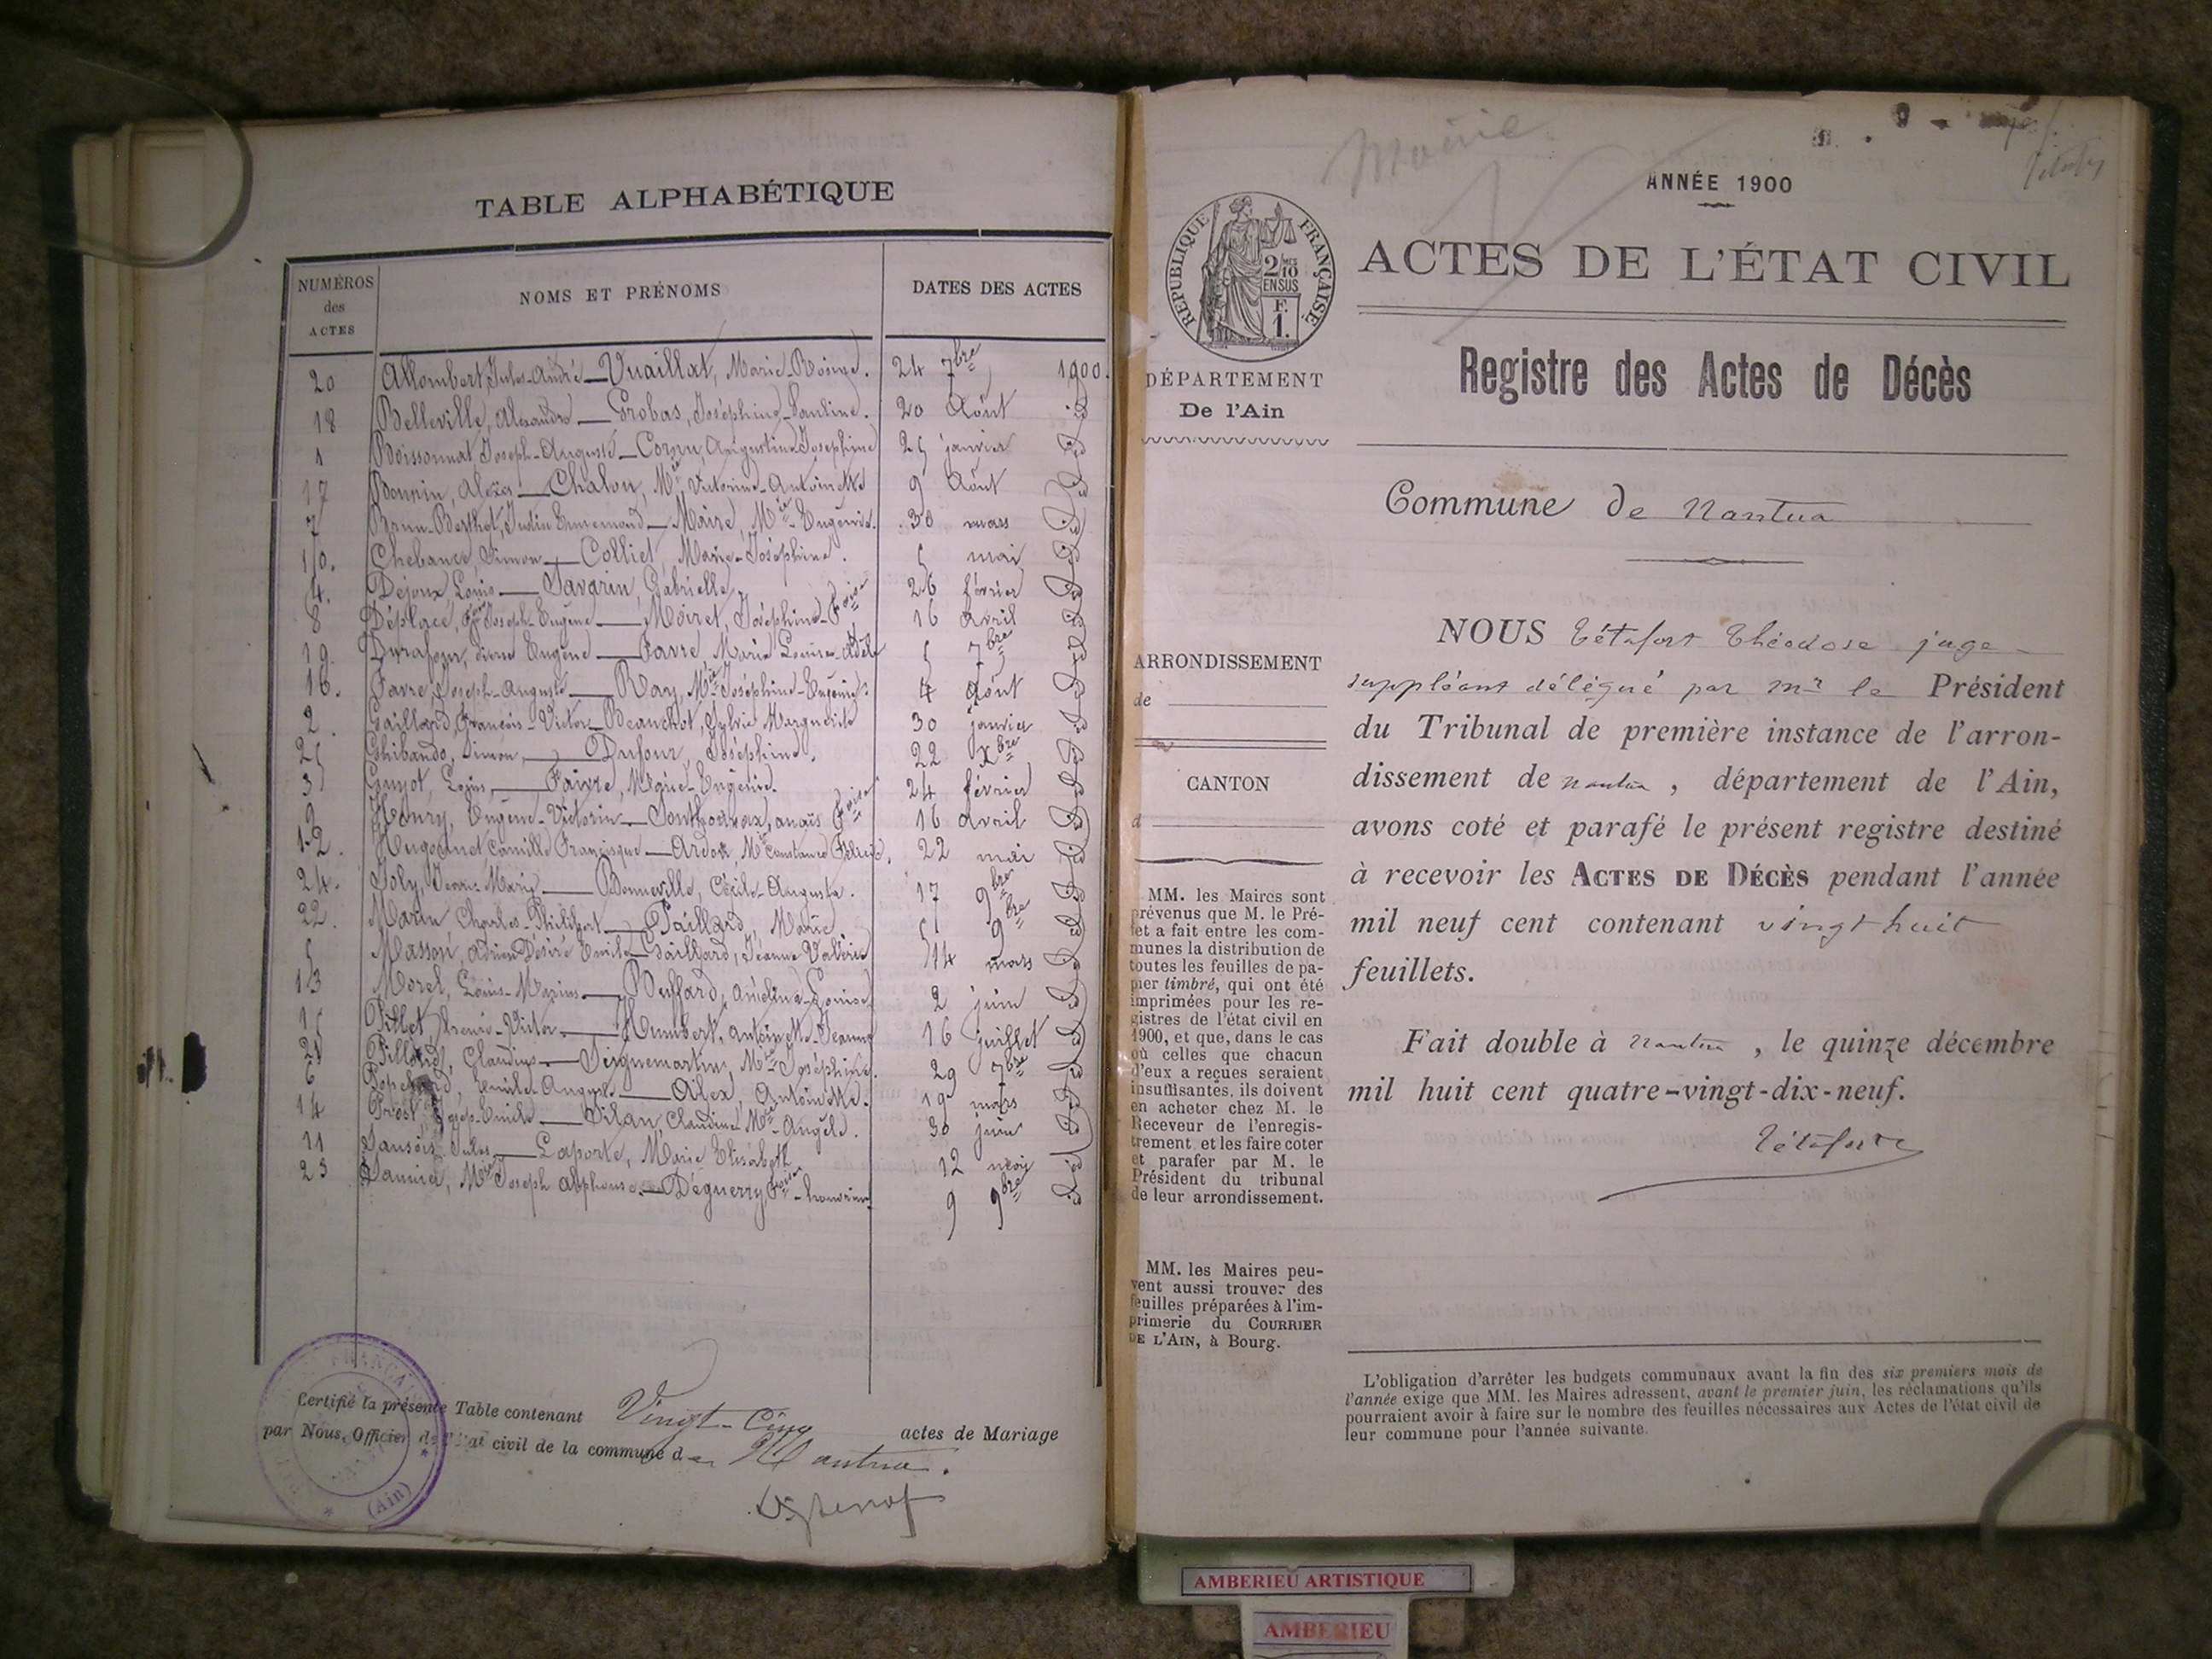 TABLE ALPHABÉTIQUE
NUMÉROS des ACTES
NOMS ET PRÉNOMS
DATES DES ACTES
20 Allombert, Jules-André — Vuaillat, Marie-Rosine. 24 7bre 1900.
18 Belleville, Alexandre — Josephine-Pauline. 20 Août id
1 Boissonnat, Joseph-Auguste — Cornu, Augustine Josephine 25 janvier id
17 Chalon, Mie Victorine-Antoinette 9 Août id
7 Brun-Berthet, — Maire, Mie-Eugénie. 30 mars id
10. Chebance, Simon — Colliet, Marie-Joséphine. 5 mai id
4. Dejoux, Louis — Savarin, Gabrielle 26 février id
8 Déplacé, Joseph-Eugène — Moiret, Joséphine-Foise 16 Avril id
19. Durafour, Pierre Eugène — Favre, Marie Louise-Adèle 5 7bre id
16. Favre, Joseph-Auguste — Ray, Mie-Joséphine-Eugénie. 4 Août id
2. Gaillard, François-Victor — Beauchot, Sylvie Marguerite 30 janvier id
25 Ghibaudo, Simon, — Dufour, Joséphine. 22 Xbre id
3 Guyot, Louis, — Faivre, Marie-Eugénie. 24 février id
9 Eugène-Victorin — Foise 16 Avril id
12. Hugonnet Camille Françisque — Mie Constance 22 mai id
24. Joly, Jean-Marie — Bonneville, Cécile-Augusta. 17 9bre id
22. Marin Charles-Philibert — Paillard, Marie 5 9bre id
5 Masson, Adrien Désiré Emile — Gaillard, Jeanne Valérie 14 mars id
13 Morel, Louis-Marius — Buffard, Amélina-Louise 2 juin id
15 Pillet — Humbert, Antoinette-Jeanne 16 juillet id
21 Pillard, Claudius — Seignemartin, Mie-Joséphine. 29 7bre id
6 Emile-August — Antoinette. 19 mars id
14 Prost — Claudine Mie-Angèle. 30 juin id
11 Jules — Laporte, Marie Elisabeth 12 mai id
23 Mie Joseph Alphonse. — Déguerry Foise 9 9bre id
Certifié la présente Table contenant Vingt-Cinq actes de Mariage
par Nous, Officier de l'état civil de la commune de Nantua.
(Ain)
Mairie
ANNÉE 1900
RÉPUBLIQUE FRANÇAISE
2/10 EN SUS
F. 1.
ACTES DE L'ÉTAT CIVIL
Registre des Actes de Décès
DÉPARTEMENT
De l'Ain
Commune de Nantua
ARRONDISSEMENT
de
CANTON
d
NOUS Tétafort Théodose juge
suppléant délégué par Mr le Président
du Tribunal de première instance de l'arron-
dissement de Nantua, département de l'Ain,
avons coté et parafé le présent registre destiné
à recevoir les ACTES DE DÉCÈS pendant l'année
mil neuf cent contenant vingt huit
feuillets.
Fait double à Nantua, le quinze décembre
mil huit cent quatre-vingt-dix-neuf.
Tétafort
MM. les Maires sont
prévenus que M. le Pré-
fet a fait entre les com-
munes la distribution de
toutes les feuilles de pa-
pier timbré, qui ont été
imprimées pour les re-
gistres de l'état civil en
1900, et que, dans le cas
où celles que chacun
d'eux a reçues seraient
insuffisantes, ils doivent
en acheter chez M. le
Receveur de l'enregis-
trement et les faire coter
et parafer par M. le
Président du tribunal
de leur arrondissement.
MM. les Maires peu-
vent aussi trouver des
feuilles préparées à l'im-
primerie du COURRIER
DE L'AIN, à Bourg.
L'obligation d'arrêter les budgets communaux avant la fin des six premiers mois de
l'année exige que MM. les Maires adressent, avant le premier juin, les réclamations qu'ils
pourraient avoir à faire sur le nombre des feuilles nécessaires aux Actes de l'état civil de
leur commune pour l'année suivante.
AMBERIEU ARTISTIQUE
AMBERIEU